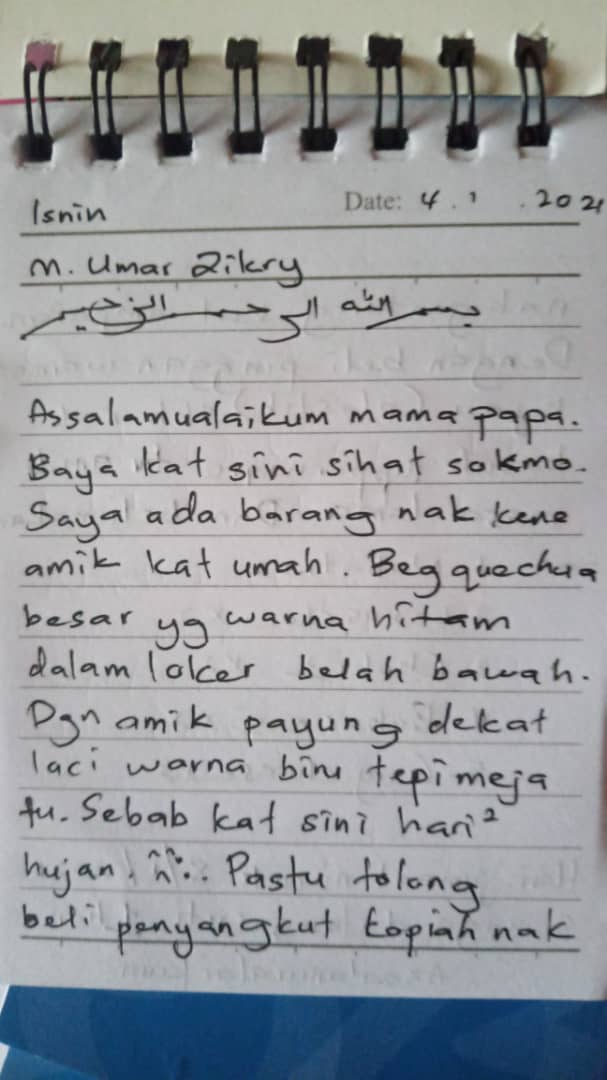 Isnin
Date: 4 . 1 . 2021
M. Umar Zikry
بسم الله الرحمن الرحيم
Assalamualaikum mama papa.
Baya kat sini sihat sokmo.
Saya ada barang nak kene
amik kat umah. Beg quechua
besar yg warna hitam
dalam loker belah bawah.
Dgn amik payung dekat
laci warna biru tepi meja
tu. Sebab kat sini hari²
hujan. Pastu tolong
beli penyangkut kopiah nak